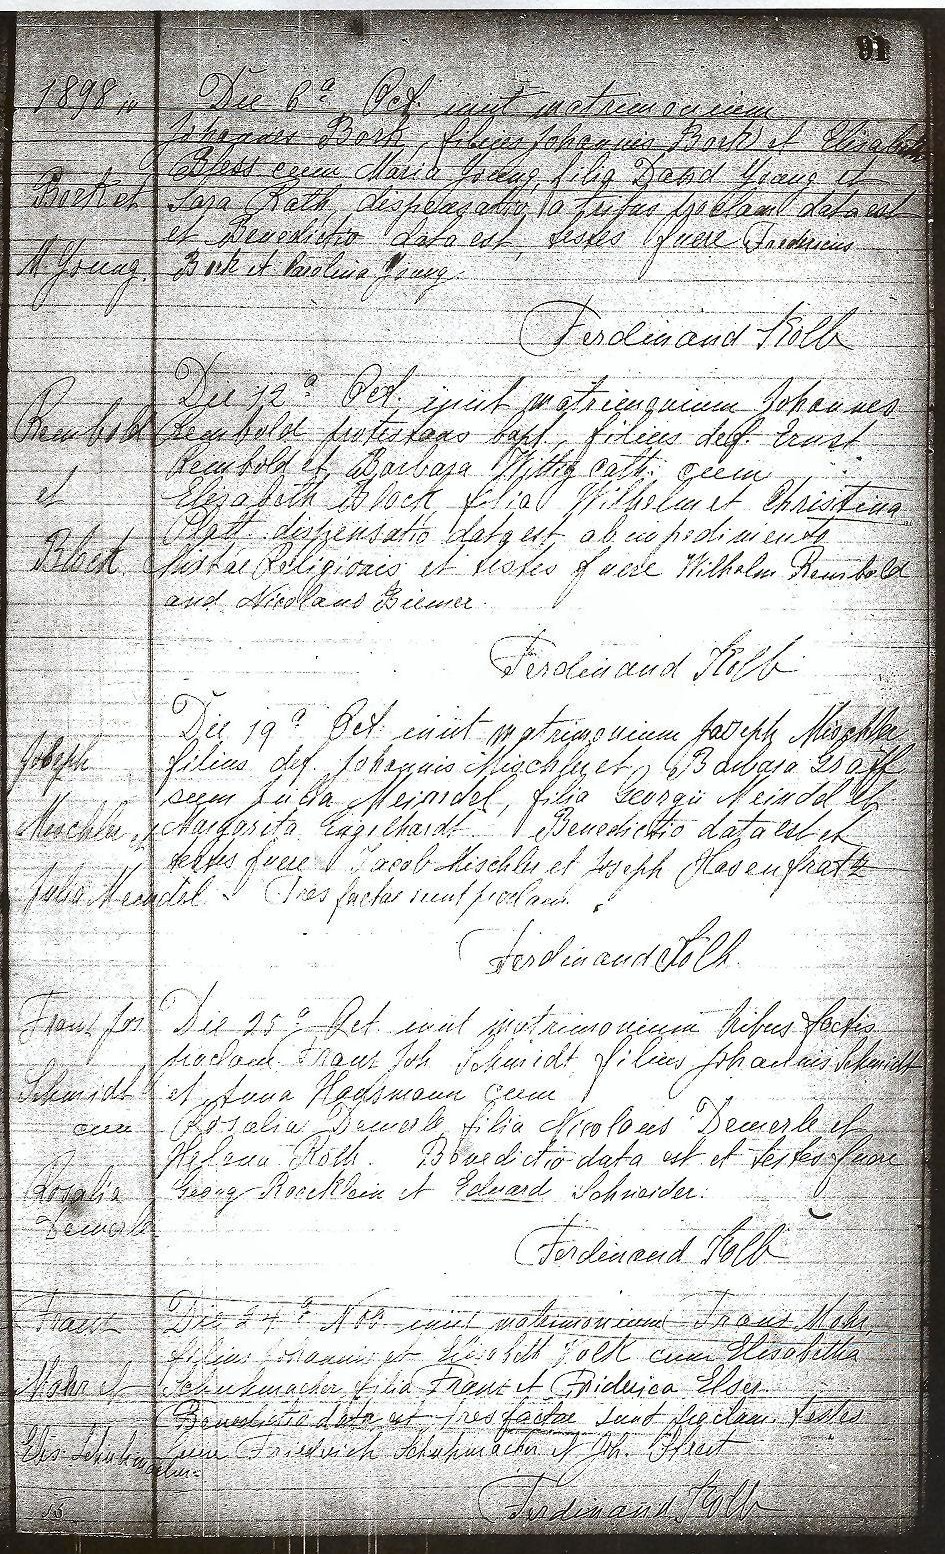 91
1898
Die 6a Oct. iniit matrimonium
Johannes Bork, filius Johannis Bork et Elisabeth
Bless cum Maria Young, filia David Young et
Bork et
Sara Rath, dispensatio a tribus proclam data est
et Benedictio data est, testes fuere Fredericus
M. Young
Bork et Carolina Young.
Ferdinand Kolb
Die 12a Oct. iniit matrimonium Johannes
Rembold
Rembold protestans bapt. filius def. Ernst
Rembold et Barbara Wittig cath. cum
et
Elisabeth Block filia Wilhelm et Christina
Platt dispensatio data est ab impedimento
Block
Mixtae Religionis et testes fuere Wilhelm Rembold
and Nicolaus Biemer.
Ferdinand Kolb
Die 19a Oct. iniit matrimonium Joseph Mischler
Joseph
filius def. Johannis Mischler et Barbara Graff
cum Julia Meindel, filia Georgii Meindel et
Mischler et
Margarita Engelhardt. Benedictio data est et
testes fuere Jacob Mischler et Joseph Hasenfratz
Julia Meindel
Tres factae sunt proclam.
Ferdinand Kolb
Franz Jos
Die 25a Oct. iniit matrimonium tribus factis
proclam Franz Joh Schmidt filius Johannis Schmidt
Schmidt
et Anna Hausmann cum
cum
Rosalia Demerle filia Nicolaus Demerle et
Helena Roth. Benedictio data est et testes fuere
Rosalia
Georg Roecklein et Eduard Schneider.
Demerle
Ferdinand Kolb
Franz
Die 24a Nov iniit matrimonium Franz Mohr,
filius Johannis et Elisabeth Folk cum Elisabetha
Mohr et
Schuhmacher filia Franz et Friderica Elser
Benedictio data est tres factae sunt proclam. Testes
Elis Schuhmacher
fuere Friedrich Schuhmacher et Joh.
Ferdinand Kolb